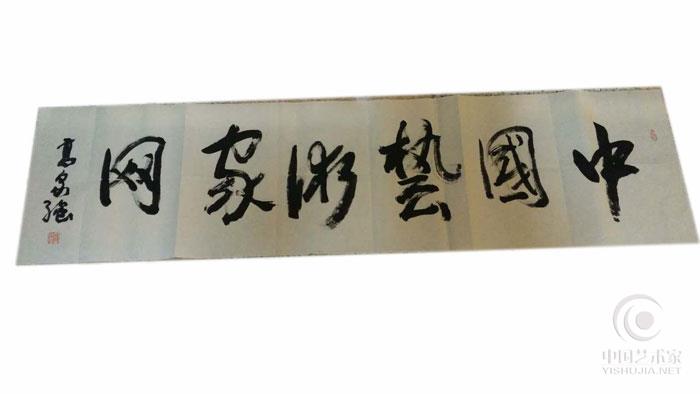 中國藝術家网
高泉强
中国艺术家
YISHUJIA.NET